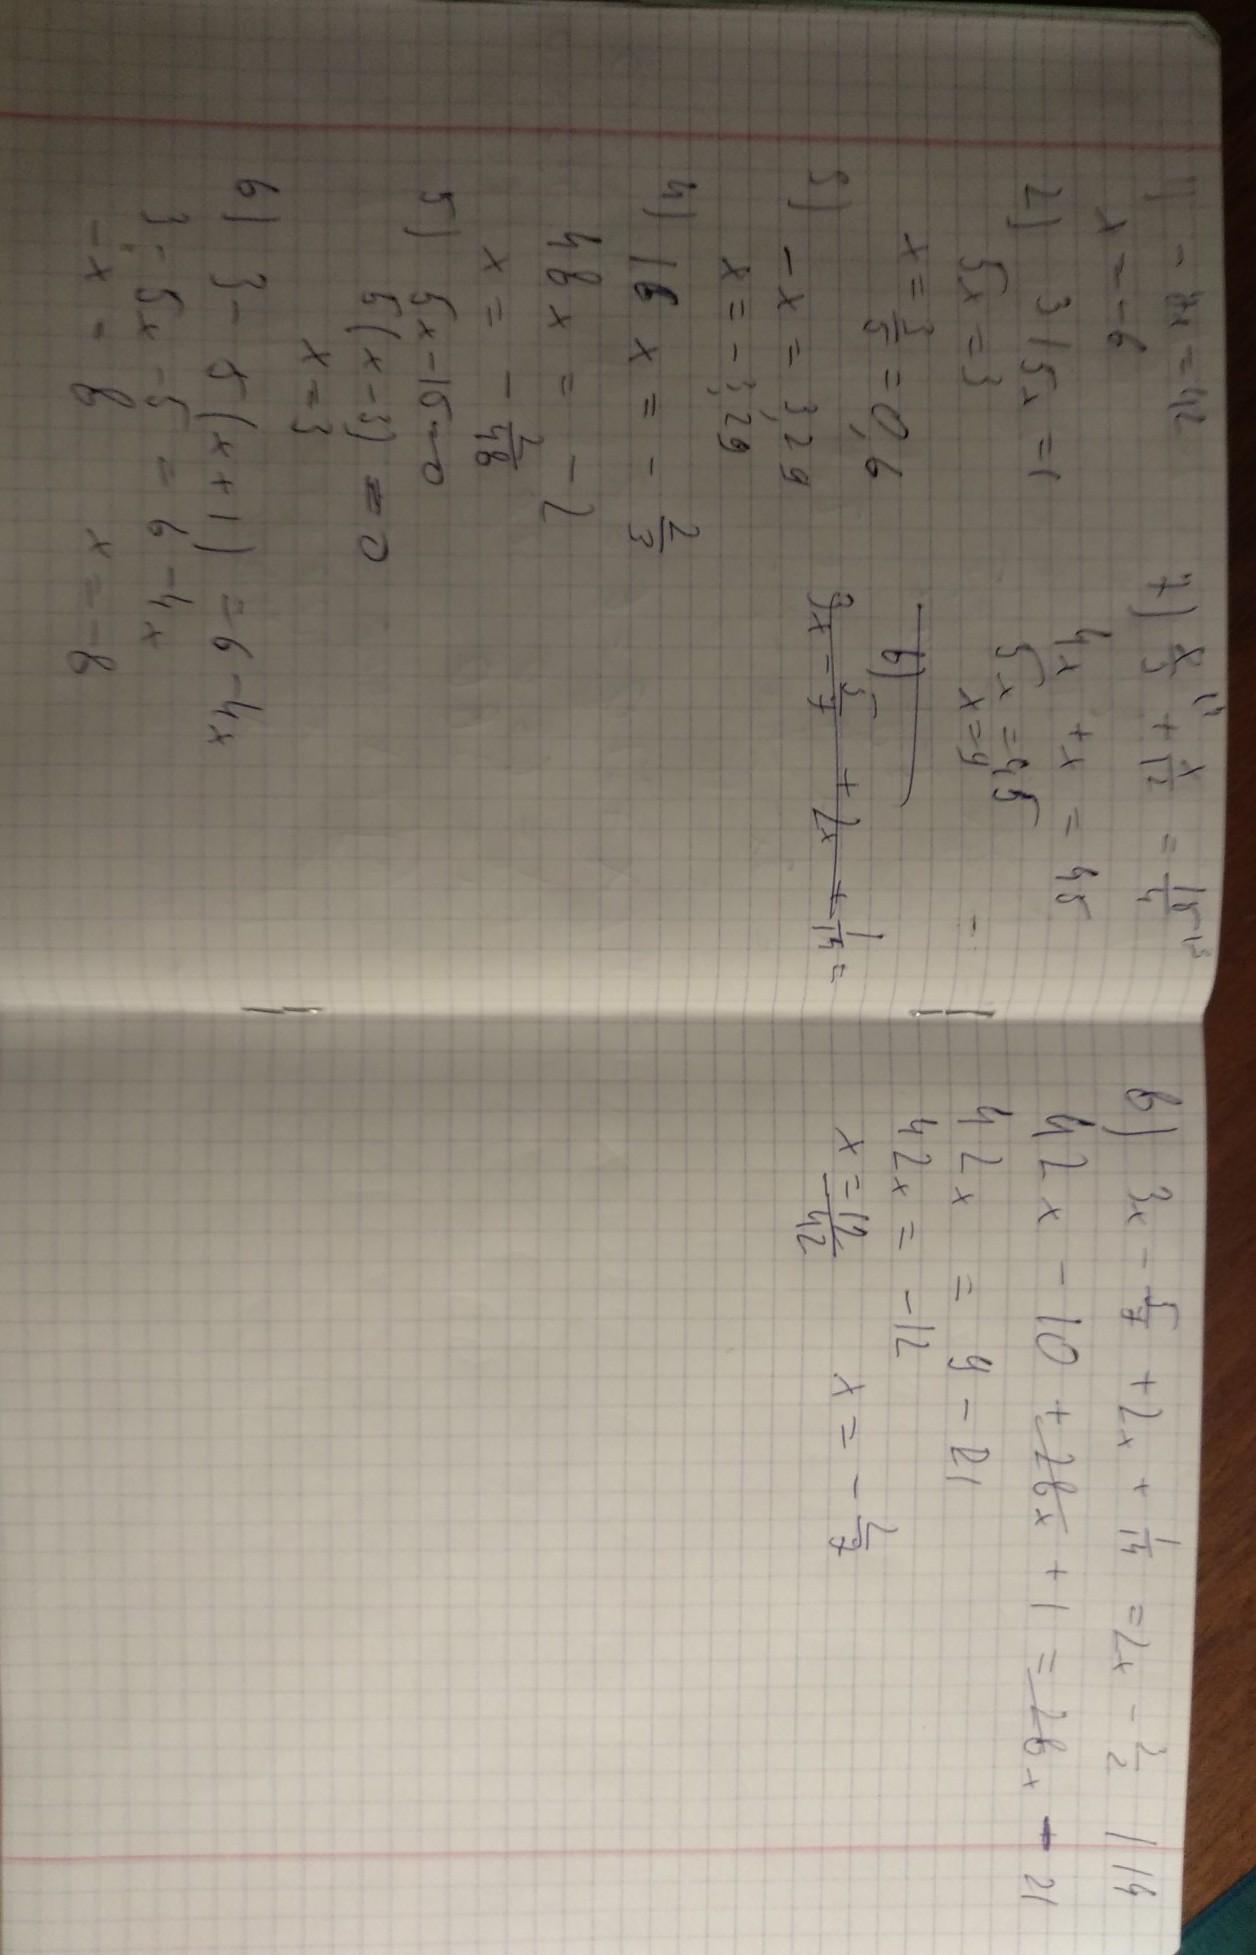 1) - 7x = 42
x = - 6
2) 3 / 5x = 1
5x = 3
x = 3/5 = 0,6
3) - x = 3,29
x = - 3,29
4) 16 x = - 2/3
48 x = - 2
x = - 2/48
5) 5x - 15 = 0
5 (x - 3) = 0
x = 3
6) 3 - 5 (x + 1) = 6 - 4x
3 - 5x - 5 = 6 - 4x
- x = 8 x = - 8
7) x/3 + x/12 = 15/4
4x + x = 45
5x = 45
x = 9
3x - 5/7 + 2x + 1/14 =
8) 3x - 5/7 + 2x + 1/14 = 2x - 3/2 | 14
42x - 10 + 28x + 1 = 28x - 21
42x = 9 - 21
42x = - 12
x = - 12/42 x = - 2/7